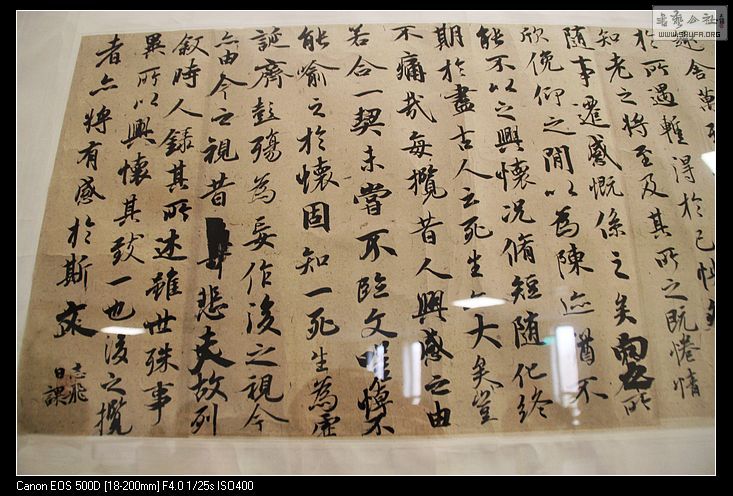 舍萬
於所遇輙得於己快
知老之將至及其所之既惓情
随事遷感慨係之矣向之所
欣俛仰之閒以為陳迹猶不
能不以之興懷况脩短随化終
期於盡古人云死生亦大矣豈
不痛哉每攬昔人興感之由
若合一契未嘗不臨文嗟悼不
能喻之於懷固知一死生為虛
誕齊彭殤為妄作後之視今
亦由今之視昔悲夫故列
敘時人錄其所述雖世殊事
異所以興懷其致一也後之攬
者亦將有感於斯文
志飛
日課
書藝公社
WWW.SHUFA.ORG
Canon EOS 500D [18-200mm] F4.0 1/25s ISO400